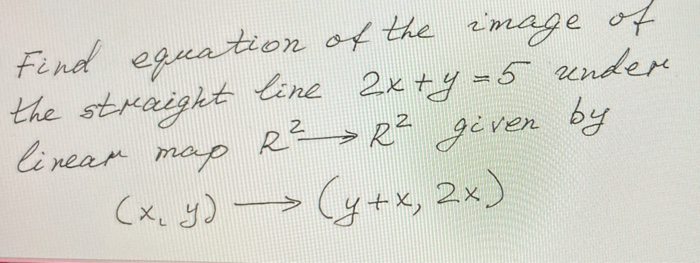 Find equation of the image of
the straight line 2x+y=5 under
linear map R² → R² given by
(x, y) → (y+x, 2x)